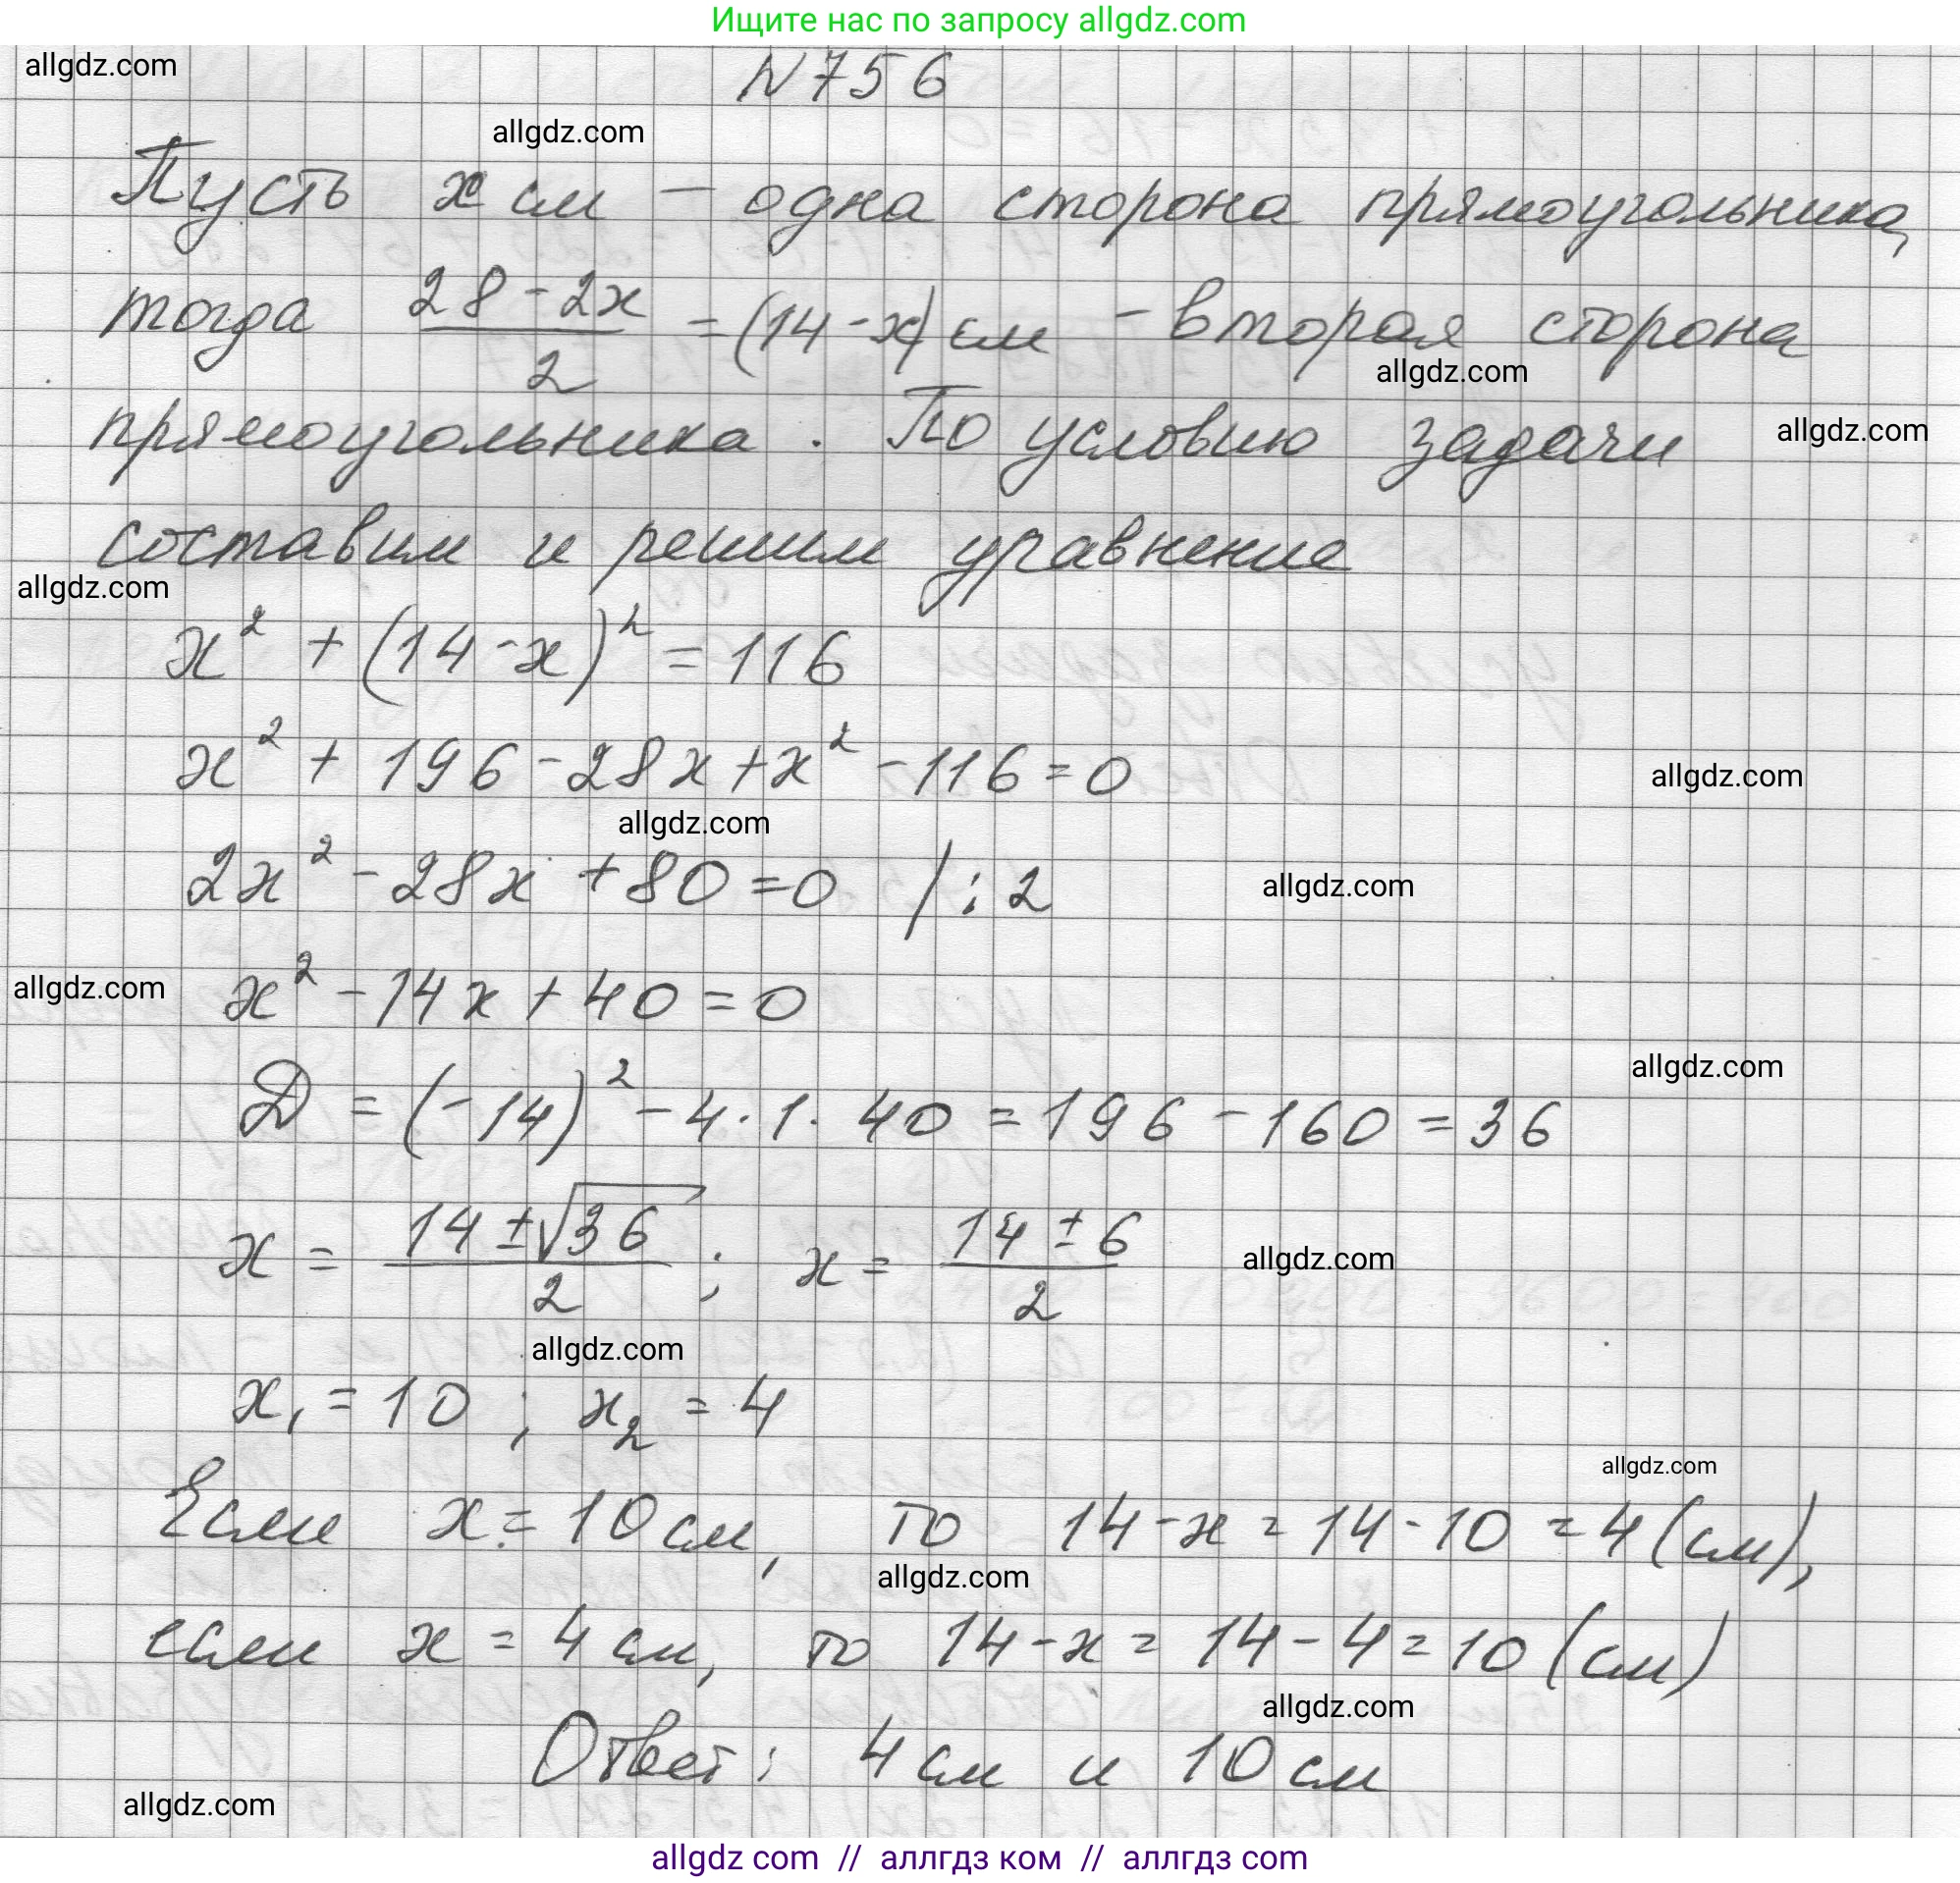 Ищите нас по запросу allgdz.com
allgdz.com
N756
allgdz.com
Пусть x см — одна сторона прямоугольника,
тогда (28-2x)/2 = (14-x) см - вторая сторона
allgdz.com
прямоугольника. По условию задачи
allgdz.com
составим и решим уравнение
allgdz.com
x² + (14-x)² = 116
x² + 196 - 28x + x² - 116 = 0
allgdz.com
allgdz.com
2x² - 28x + 80 = 0 / : 2
allgdz.com
x² - 14x + 40 = 0
allgdz.com
allgdz.com
D = (-14)² - 4 · 1 · 40 = 196 - 160 = 36
x = (14 ± √36)/2 ; x = (14 ± 6)/2
allgdz.com
allgdz.com
x₁ = 10 ; x₂ = 4
allgdz.com
Если x = 10 см, то 14-x = 14-10 = 4 (см),
allgdz.com
если x = 4 см, то 14-x = 14-4 = 10 (см)
allgdz.com
Ответ: 4 см и 10 см
allgdz.com
allgdz com // аллгдз ком // аллгдз com